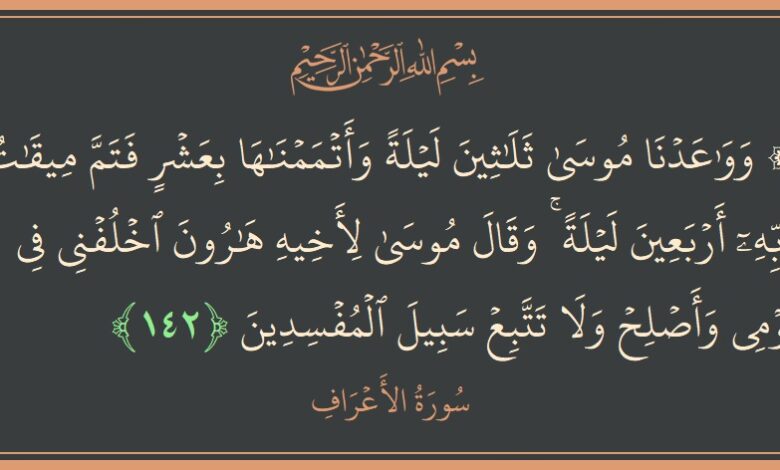 بِسْمِ اللَّهِ الرَّحْمَٰنِ الرَّحِيمِ
۞ وَوَٰعَدْنَا مُوسَىٰ ثَلَٰثِينَ لَيْلَةً وَأَتْمَمْنَٰهَا بِعَشْرٍ فَتَمَّ مِيقَٰتُ
بِّهِۦٓ أَرْبَعِينَ لَيْلَةً ۚ وَقَالَ مُوسَىٰ لِأَخِيهِ هَٰرُونَ ٱخْلُفْنِى فِى
وْمِى وَأَصْلِحْ وَلَا تَتَّبِعْ سَبِيلَ ٱلْمُفْسِدِينَ ﴿١٤٢﴾
سُورَةُ الأَعْرَافِ